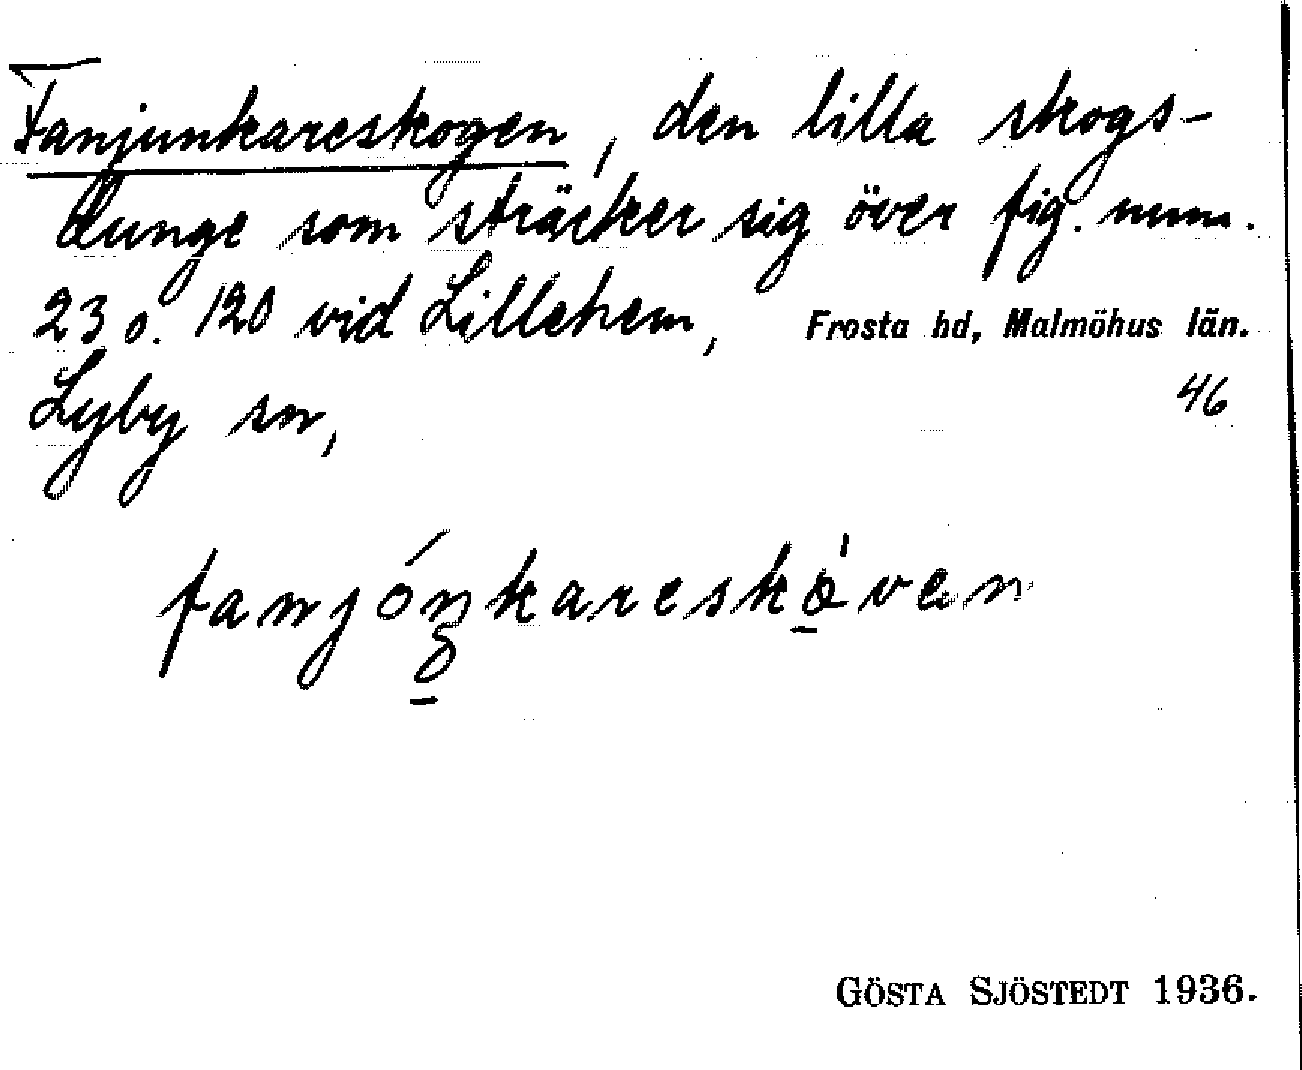 Fanjunkareskogen, den lilla skogs-
dunge som sträcker sig över fig. num.
23 o. 120 vid Lillehem, Frosta hd, Malmöhus län.
Lyby sn, 46
fanjóŋkareskǫ̀ven
GÖSTA SJÖSTEDT 1936.